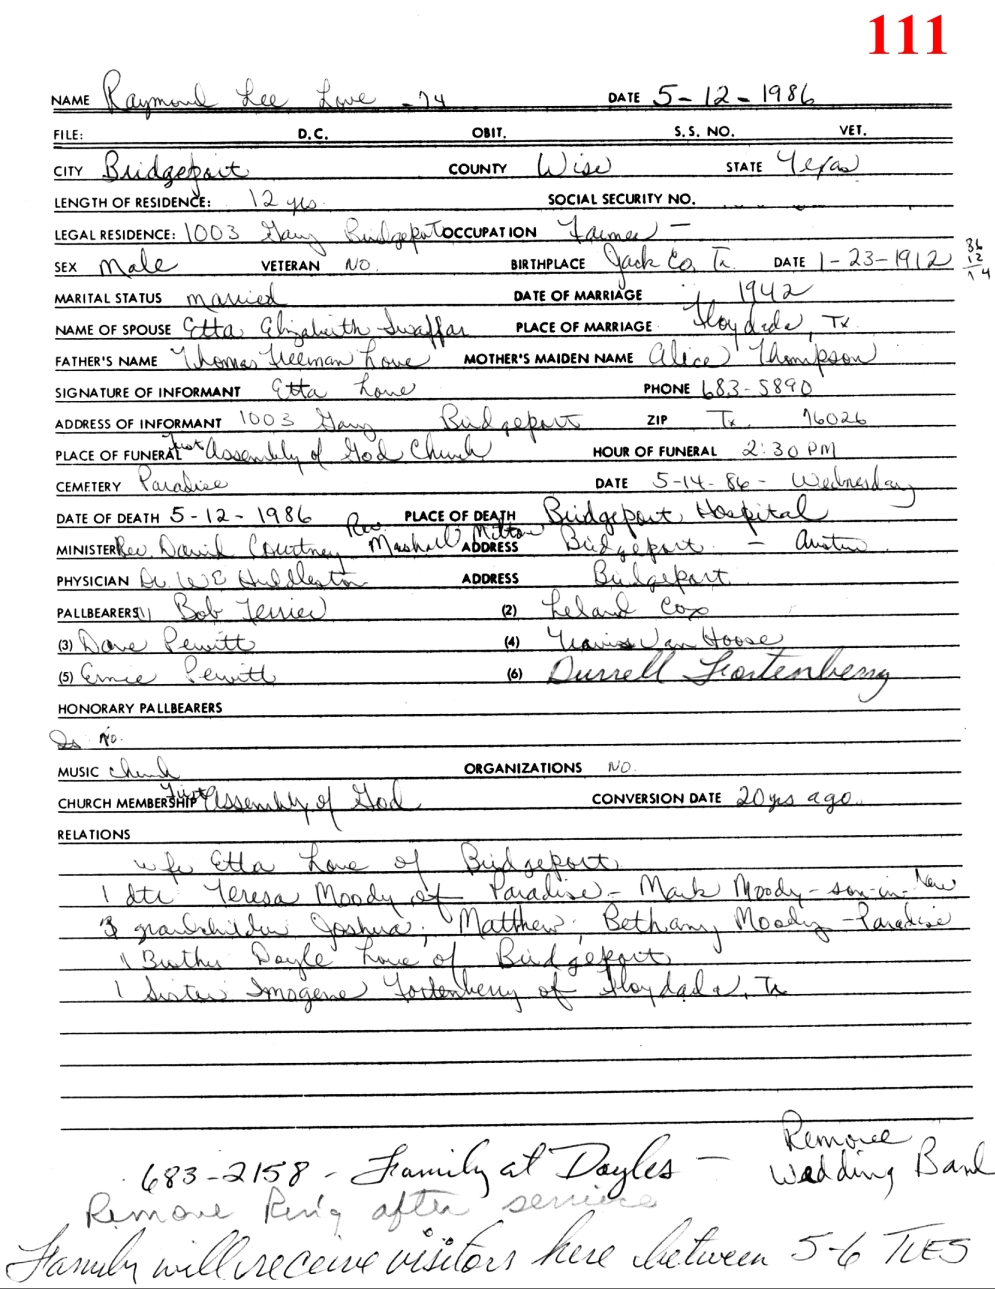 111
NAME Raymond Lee Love - 74 DATE 5-12-1986
FILE: D.C. OBIT. S.S. NO. VET.
CITY Bridgeport COUNTY Wise STATE Texas
LENGTH OF RESIDENCE: 12 yrs. SOCIAL SECURITY NO.
LEGAL RESIDENCE: 1003 Gary Bridgeport OCCUPATION Farmer -
SEX Male VETERAN NO. BIRTHPLACE Jack Co, Tx. DATE 1-23-1912 86 12 74
MARITAL STATUS married DATE OF MARRIAGE 1942
NAME OF SPOUSE Etta Elizabeth Swaffar PLACE OF MARRIAGE Floydada, Tx
FATHER'S NAME Thomas Freeman Love MOTHER'S MAIDEN NAME Alice Thompson
SIGNATURE OF INFORMANT Etta Love PHONE 683-5890
ADDRESS OF INFORMANT 1003 Gary Bridgeport ZIP Tx. 76026
PLACE OF FUNERAL First Assembly of God Church HOUR OF FUNERAL 2:30 PM
CEMETERY Paradise DATE 5-14-86 - Wednesday
DATE OF DEATH 5-12-1986 PLACE OF DEATH Bridgeport Hospital
MINISTER Rev. David Courtney Rev Marshall Milton ADDRESS Bridgeport - Austin
PHYSICIAN Dr. WE Huddleston ADDRESS Bridgeport
PALLBEARERS(1) Bob Terrier (2) Leland Cox
(3) Dave Pewitt (4) Travis Van Hoose
(5) Ernie Pewitt (6) Durrell Fortenberry
HONORARY PALLBEARERS
No.
MUSIC Church ORGANIZATIONS NO.
CHURCH MEMBERSHIP First Assembly of God CONVERSION DATE 20 yrs ago
RELATIONS
wife Etta Love of Bridgeport
1 dtr Teresa Moody of Paradise - Mark Moody - son-in-law
3 grandchildren Joshua, Matthew, Bethany Moody - Paradise
1 Brother Doyle Love of Bridgeport
1 Sister Imogene Fortenberry of Floydada, Tx
683-2158 - Family at Doyles - Remove Wedding Band
Remove Ring after service
Family will receive visitors here between 5-6 TUES